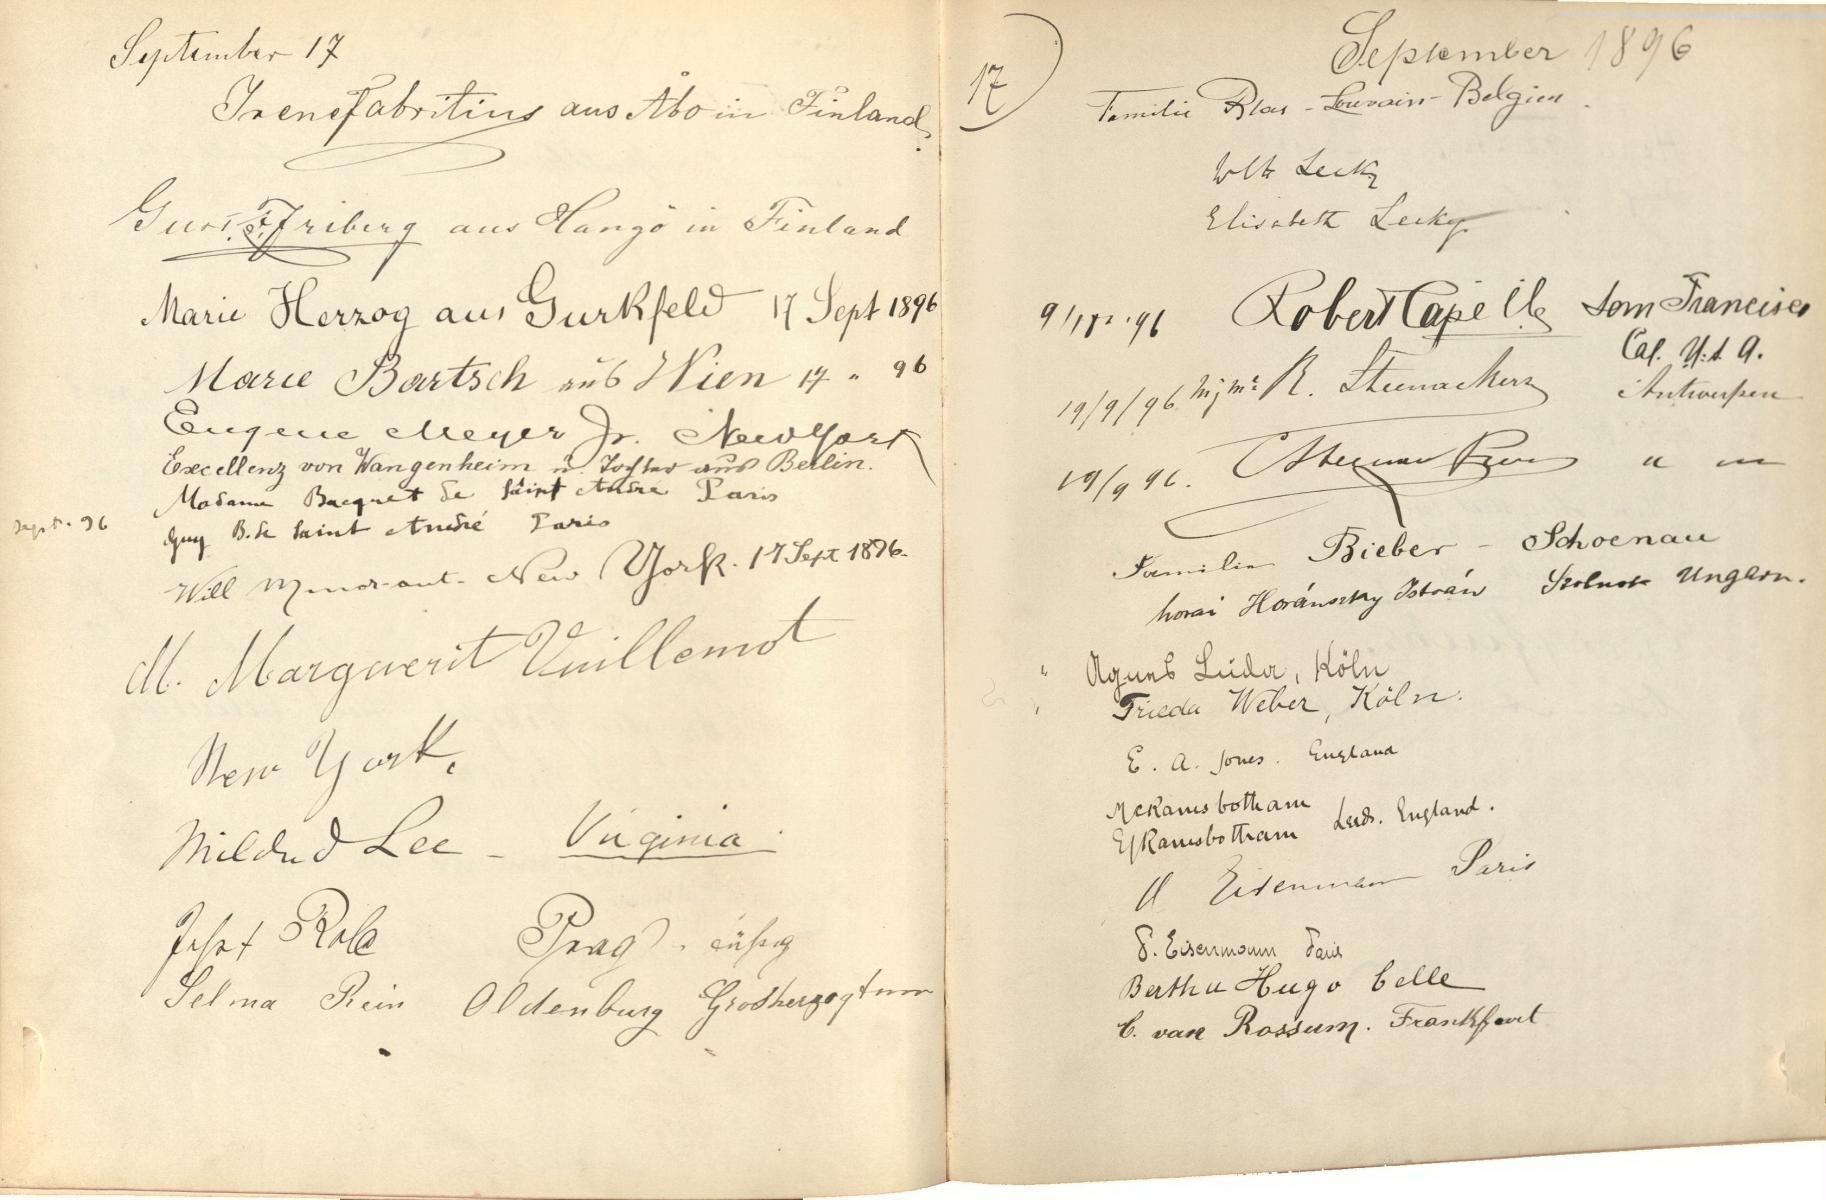 September 17
Irene Fabritius aus Åbo in Finland.
Gust. F. Friberg aus Hangö in Finland
Marie Herzog aus Gurkfeld 17 Sept 1896
Marie Bartsch aus Wien 17 " 96
Eugene Meyer Jr. New York
Execellenz von Wangenheim u. Tochter aus Berlin.
Madame Bacquet de Saint André Paris
Sept. 96 Guy B. de Saint André Paris
Will New York. 17 Sept 1896.
M. Marguerit Vuillemot
New York.
Mildred Lee - Virginia
Prag
Selma Rein Oldenburg Grossherzogtum
17
September 1896
Familie Blas - Louvain - Belgien
Lecky
Elisabeth Lecky
Robert Capelle San Francisco
Cal. U.S.A.
19/9/96 R. Steenackers Antwerpen
19/9 96.
Familie Bieber - Schoenau
Horánszky István Szolnok Ungarn.
" Agnes Lüder, Köln
" Frieda Weber, Köln.
E. A. Jones. England
McRamsbotham
EfRamsbotham Leeds. England.
Eisenmann Paris
Eisenmann Paris
Bertha Hugo Celle
C. van Rossum. Frankfurt